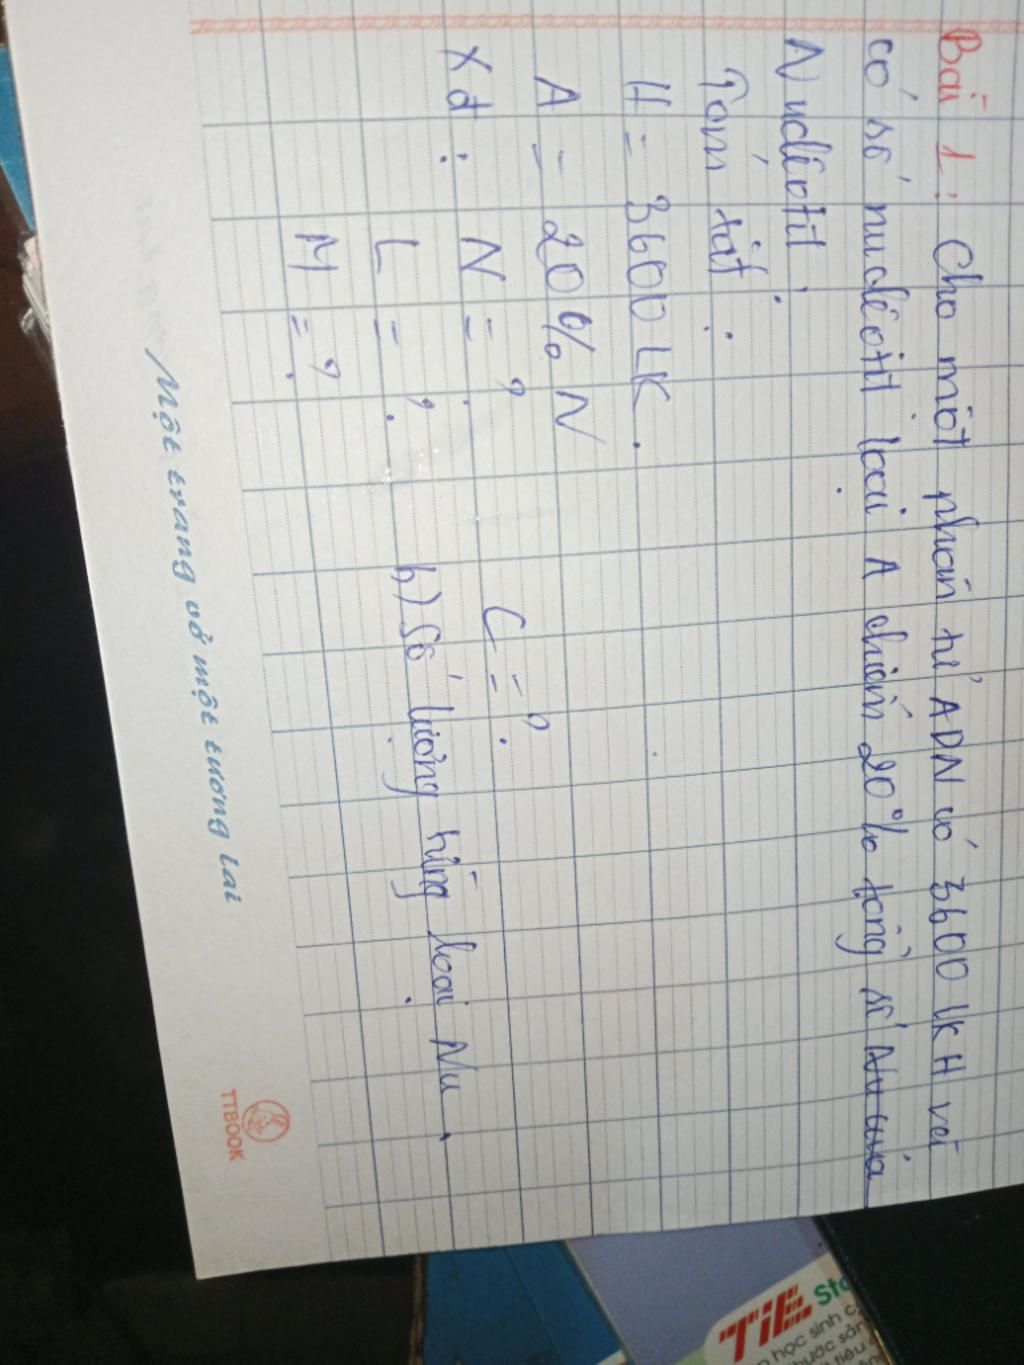 Bài 1: Cho một phân tử ADN có 3600 lk H với
có số nuclêotit loại A chiếm 20% tổng số Nu của
Nuclêotit.
Tóm tắt:
H = 3600 LK.
A = 20% N
Xđ: N = ?
C = ?
L = ?
b) Số lượng từng loại Nu.
M = ?
Một trang vở một tương lai
TTBOOK
TiE
học sinh